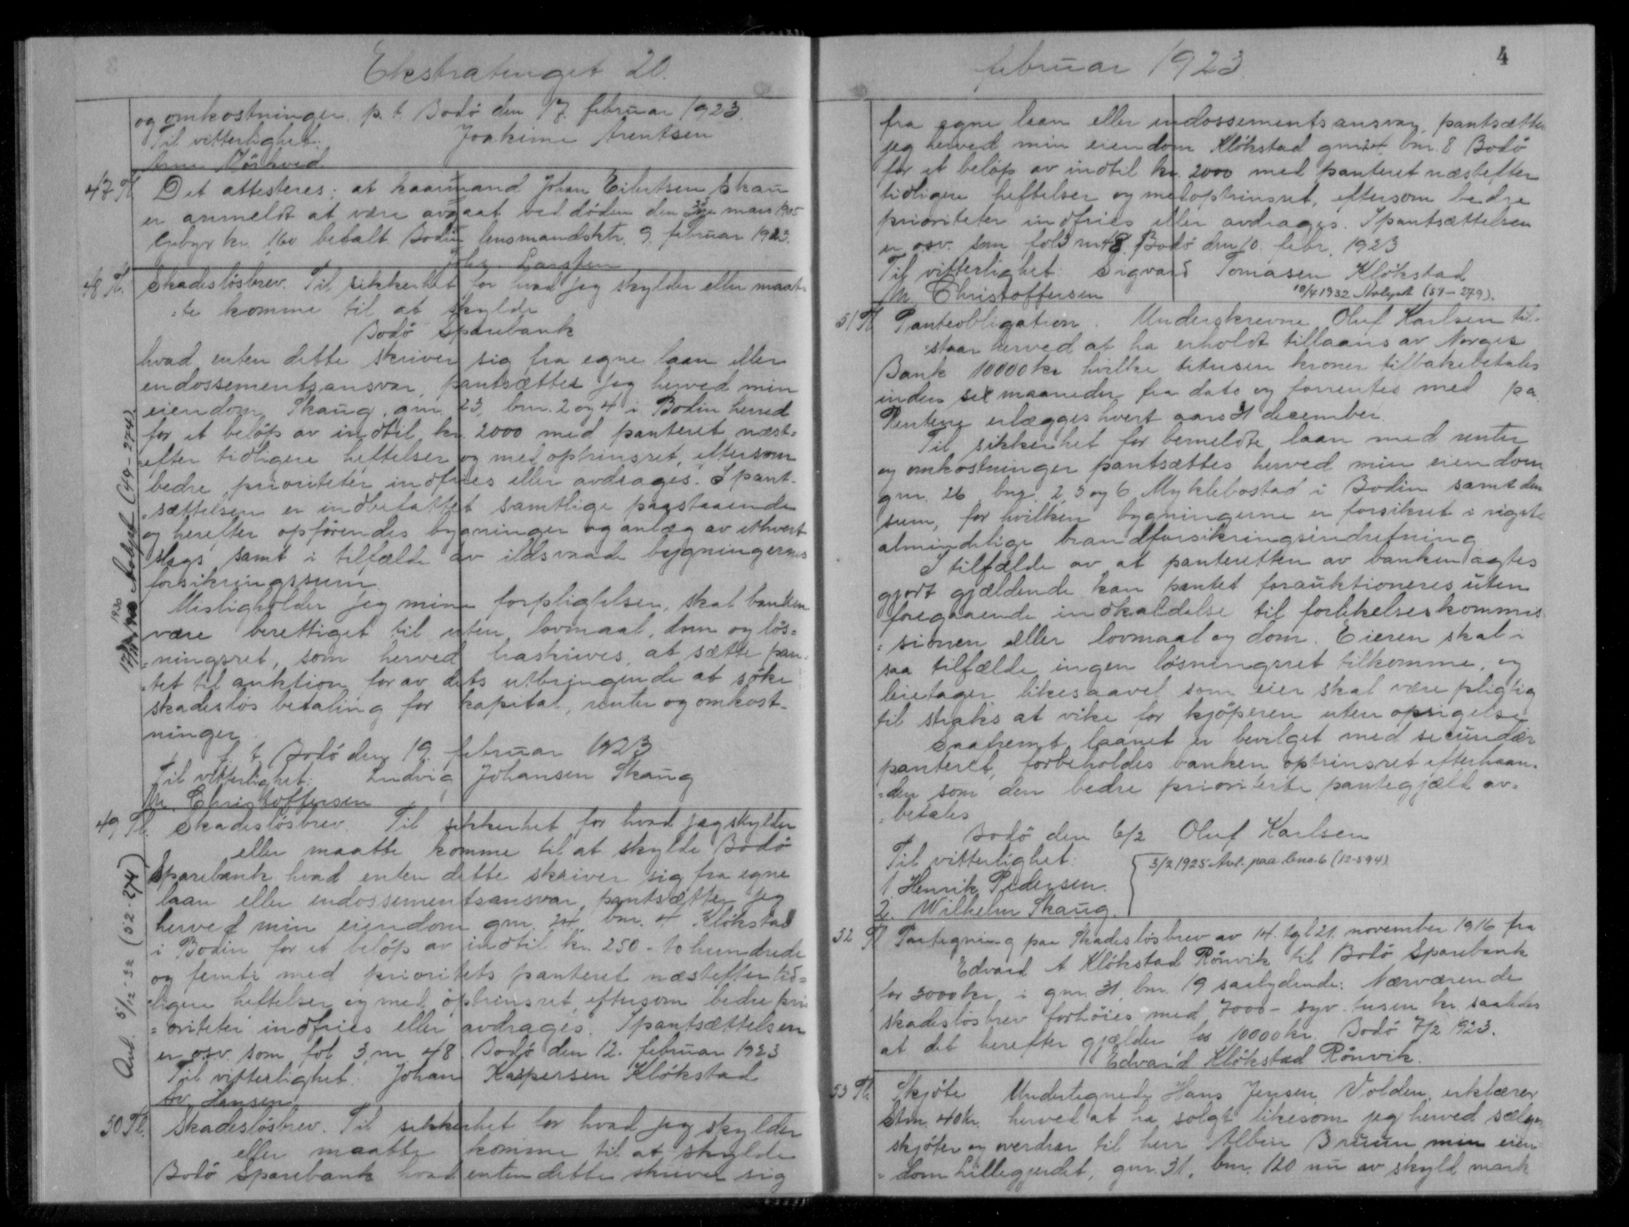 Ekstratinget 20.
og omkostninger p. t. Bodö den 17 februar 1923
Til vitterlighet: Joakime Arentsen
Arne Mörkved
47 Tl. Det attesteres: at kaarmand Johan Eibertsen Skau
er anmeldt at være avgaat ved döden den mars 1905
Gebyr kr. 1,60 betalt Bodin lensmandsktr. 9. februar 1923.
Johs. Larssen
48 Tl. Skadeslösbrev. Til sikkerhet for hvad jeg skylder eller maat-
te komme til at skylde
Bodö Sparebank
hvad enten dette skriver sig fra egne laan eller
endossementsansvar, pantsætter jeg herved min
eiendom Skaug, gnr. 23, bnr. 2 og 4 i Bodin herred
for et belöp av indtil kr. 2000 med panteret næst-
efter tidligere heftelser og med optrinsret, eftersom
bedre prioriteter indfries eller avdrages. I pant-
sættelsen er indbefattet samtlige paastaaende
og herefter opförendes bygninger og anlæg av ethvert
slags samt i tilfælde av ildsvaade bygningernes
forsikringssum.
Misligholder jeg mine forpligtelser, skal banken
være berettiget til uten lovmaal, dom og lös-
ningsret, som herved fraskrives, at sætte pan-
tet til auktion for av dets utbringende at söke
skadeslös betaling for kapital, renter og omkost-
ninger.
p. t. Bodö den 19 februar 1923
Til vitterlighet: Ludvig Johansen Skaug
M. Christoffersen
1930 Avlyst (44-274)
49 Tl. Skadeslösbrev. Til sikkerhet for hvad jeg skylder
eller maatte komme til at skylde Bodö
Sparebank hvad enten dette skriver sig fra egne
laan eller endossementsansvar, pantsætter jeg
herved min eiendom gnr. 24 bnr. 4 Klökstad
i Bodin for et belöp av indtil kr. 250 - to hundrede
og femti med prioritets panteret næstefter tid-
ligere heftelser og med optrinsret, eftersom bedre pri
oriteter indfries eller avdrages. I pantsættelsen
er osv. som fol 3 nr. 48 Bodö den 12. februar 1923
Til vitterlighet: Johan Kaspersen Klökstad
Av. Hansen
Avl. 5/12-32 (52-274)
50 Tl. Skadeslösbrev. Til sikkerhet for hvad jeg skylder
eller maatte komme til at skylde
Bodö Sparebank hvad enten dette skriver sig
februar 1923
4
fra egne laan eller endossementsansvar, pantsætter
jeg herved min eiendom Klökstad gnr. 24 bnr. 8 Bodö
for et belöp av indtil kr. 2000 med panteret næstefter
tidligere heftelser og med optrinsret, eftersom bedre
prioriteter indfries eller avdrages. I pantsættelsen
er osv. som fol 3 nr 48 Bodö den 10. febr. 1923
Til vitterlighet: Sigvard Tomasen Klökstad
M. Christoffersen 19/4 1932 Avlyst (51-279).
51 Tl. Panteobligation. Underskrevne Oluf Karlsen til-
staar herved at ha erholdt tillaans av Norges
Bank 10000 kr hvilke titusen kroner tilbakebetales
inden sex maaneder fra dato og forrentes med pa
Rentene erlægges hvert aars 31 december
Til sikkerhet for bemeldte laan med renter
og omkostninger pantsættes herved min eiendom
gnr. 26 bnr. 2, 5 og 6 Myklebostad i Bodin samt den
sum, for hvilken bygningerne er forsikret i rigets
almindelige brandforsikringsindretning
I tilfælde av at panteretten av banken agtes
gjort gjældende kan pantet forauktioneres uten
foregaaende indkaldelse til forlikelseskommis
sionen eller lovmaal og dom. Eieren skal i
saa tilfælde ingen løsningsret tilkomme, og
leietager likesaavel som eier skal være pligtig
til straks at vike for kjöperen uten opsigelse
Saafremt laanet er bevilget med secundær
panteret, forbeholdes banken optrinsret efterhaan-
den som den bedre prioriterte pantegjæld av-
betales
Bodö den 6/2 Oluf Karlsen
Til vitterlighet: 3/2 1925 Avl. paa bnr 6 (12-594)
1. Henrik Pedersen
2. Wilhelm Skaug.
52 Tl. Paategning paa Skadeslösbrev av 14. tgl 21. november 1916 fra
Edvard A Klökstad Rönvik til Bodö Sparebank
for 3000 kr. i gnr. 31, bnr. 19 saalydende: Nærværende
skadeslösbrev forhöies med 7000 - syv tusen kr. saaledes
at det herefter gjælder for 10000 kr. Bodö 7/2 1923.
Edvard Klökstad Rönvik.
53 Tl. Skjöte Undertegnede Hans Jensen Volden erklærer
Stm. 40 kr. herved at ha solgt likesom jeg herved sælger
skjöter og overdrar til herr Albin Bruun min eien-
dom Lillegjerdet, gnr. 31, bnr. 120 nu av skyld mark